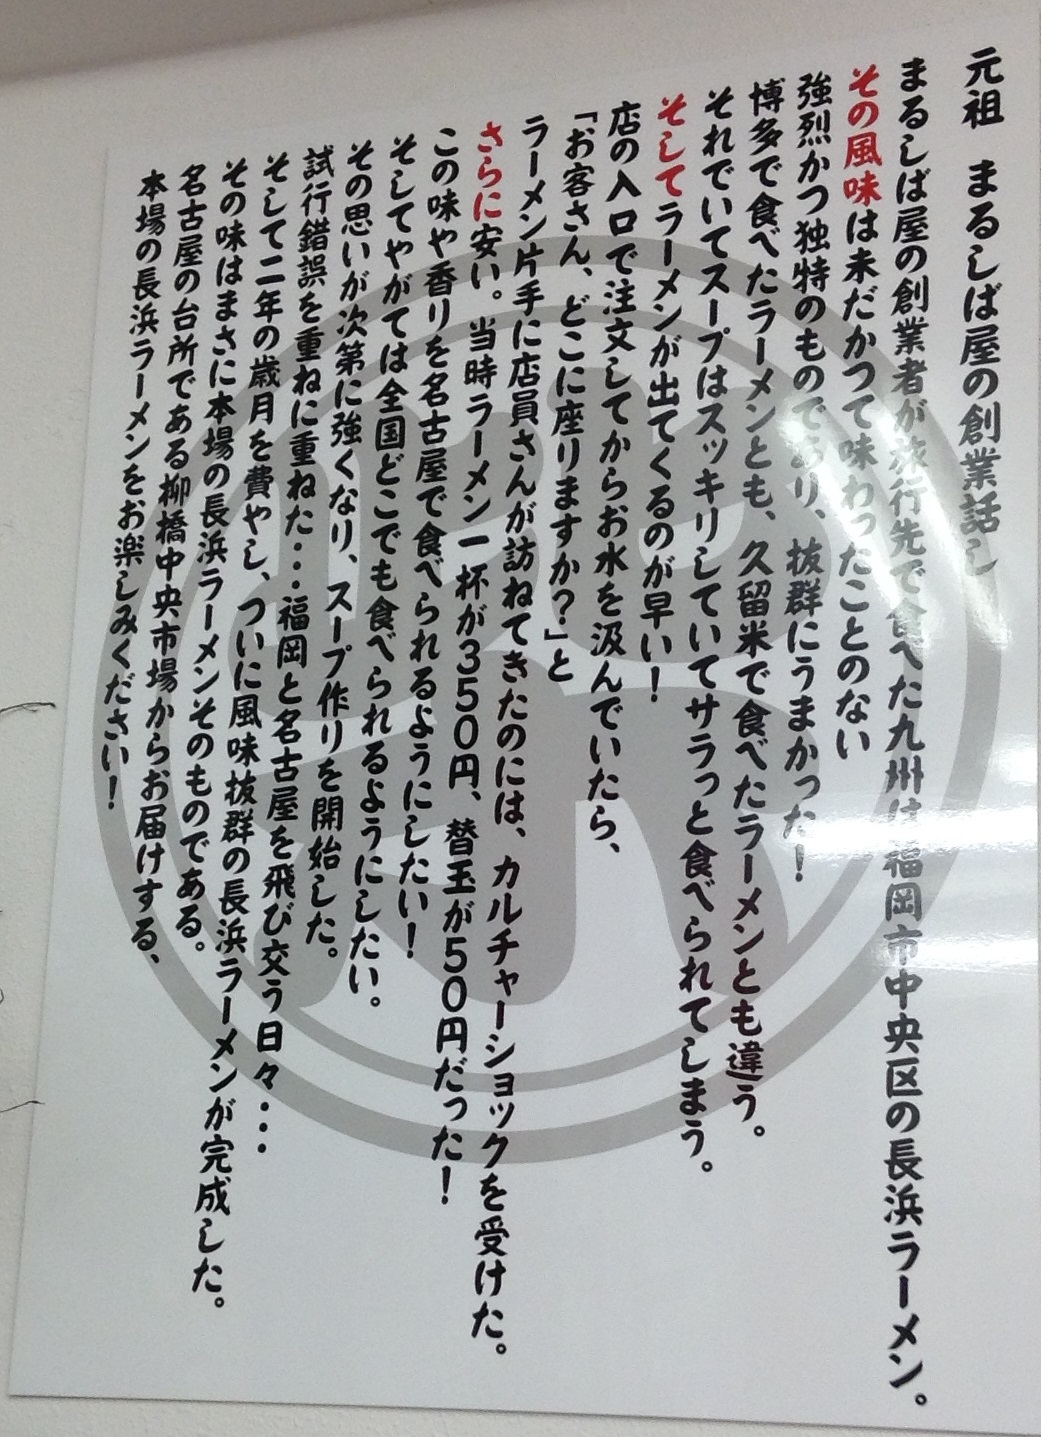 元祖　まるしば屋の創業話し
まるしば屋の創業者が旅行先で食べた九州は福岡市中央区の長浜ラーメン。
その風味は未だかつて味わったことのない
強烈かつ独特のものであり、抜群にうまかった！
博多で食べたラーメンとも、久留米で食べたラーメンとも違う。
それでいてスープはスッキリしていてサラっと食べられてしまう。
そしてラーメンが出てくるのが早い！
店の入口で注文してからお水を汲んでいたら、
「お客さん、どこに座りますか？」と
ラーメン片手に店員さんが訪ねてきたのには、カルチャーショックを受けた。
さらに安い。当時ラーメン一杯が350円、替玉が50円だった！
この味や香りを名古屋で食べられるようにしたい！
そしてやがては全国どこでも食べられるようにしたい。
その思いが次第に強くなり、スープ作りを開始した。
試行錯誤を重ねに重ねた・・・福岡と名古屋を飛び交う日々・・・
そして二年の歳月を費やし、ついに風味抜群の長浜ラーメンが完成した。
その味はまさに本場の長浜ラーメンそのものである。
名古屋の台所である柳橋中央市場からお届けする、
本場の長浜ラーメンをお楽しみください！